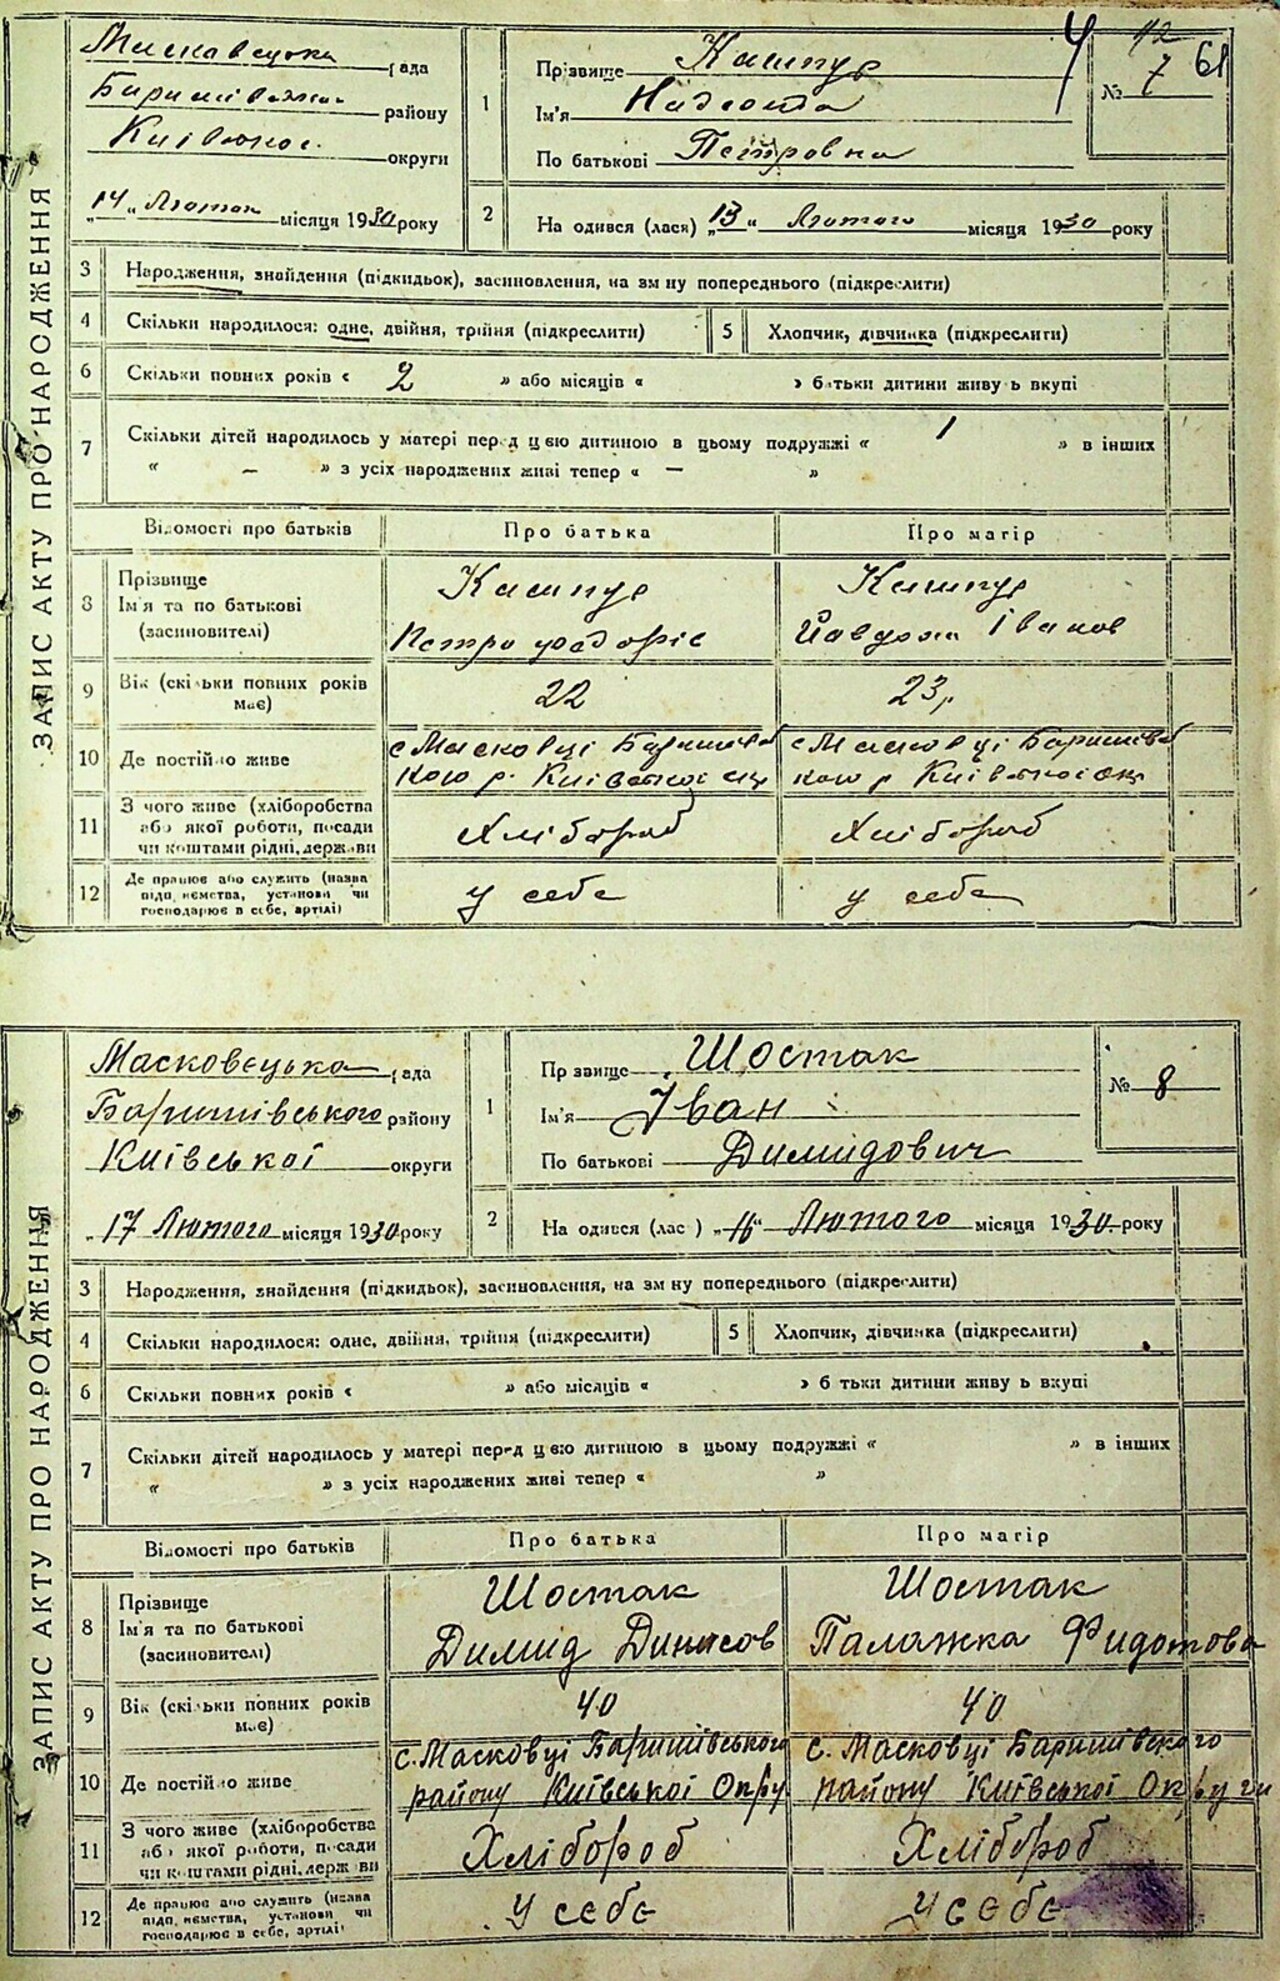 ЗАПИС АКТУ ПРО НАРОДЖЕННЯ
Масковецька рада
Баришівськ району
Київської округи
„14„ Лютого місяця 1930 року
1
Прізвище Кашпур
Ім'я Надежда
По батькові Петровна
42
№ 7
61
2
На одився (лася) „13“ Лютого місяця 1930 року
3 Народження, знайдення (підкидьок), засиновлення, на зм ну попереднього (підкреслити)
4 Скільки народилося: одне, двійня, трійня (підкреслити) 5 Хлопчик, дівчинка (підкреслити)
6 Скільки повних років « 2 » або місяців « » батьки дитини живу ь вкупі
7 Скільки дітей народилось у матері перед цією дитиною в цьому подружжі « 1 » в інших
« – » з усіх народжених живі тепер « – »
Відомості про батьків Про батька Про матір
8 Прізвище Ім'я та по батькові (засиновителі)
Кашпур Кашпур
Петро Федорів Йавдоха Іванов
9 Вік (скільки повних років має) 22 23,
10 Де постійно живе
с Масковці Баришівс с Масковці Баришівс
кою р. Київської окр кою р Київської окр
11 З чого живе (хліборобства
або якої роботи, посади
чи коштами рідні, держави
Хлібороб Хлібороб
12 Де працює або служить (назва
підп иємства, установи чи
господарює в себе, артілі)
у себе у себе
ЗАПИС АКТУ ПРО НАРОДЖЕННЯ
Масковецька рада
Баришівського району
Київської округи
„17 Лютого місяця 1930 року
1
Пр звище Шостак
Ім'я Іван
По батькові Димидович
№ 8
2
На одився (лас ) „16“ Лютого місяця 1930 року
3 Народження, знайдення (підкидьок), засиновлення, на зм ну попереднього (підкреслити)
4 Скільки народилося: одне, двійня, трійня (підкреслити) 5 Хлопчик, дівчинка (підкреслити)
6 Скільки повних років « » або місяців « » б тьки дитини живу ь вкупі
7 Скільки дітей народилось у матері перед цією дитиною в цьому подружжі « » в інших
« » з усіх народжених живі тепер « »
Відомості про батьків Про батька Про матір
8 Прізвище Ім'я та по батькові (засиновителі)
Шостак Шостак
Димид Динисов Палажка Фидотова
9 Вік (скільки повних років має) 40 40
10 Де постійно живе
с. Масковці Баришівського с. Масковці Баришівського
району Київської Окру району Київської Округи
11 З чого живе (хліборобства
або якої роботи, посади
чи коштами рідні, держ ви
Хлібороб Хлібороб
12 Де працює або служить (назва
підп иємства, установи чи
господарює в себе, артілі)
У себе У себе